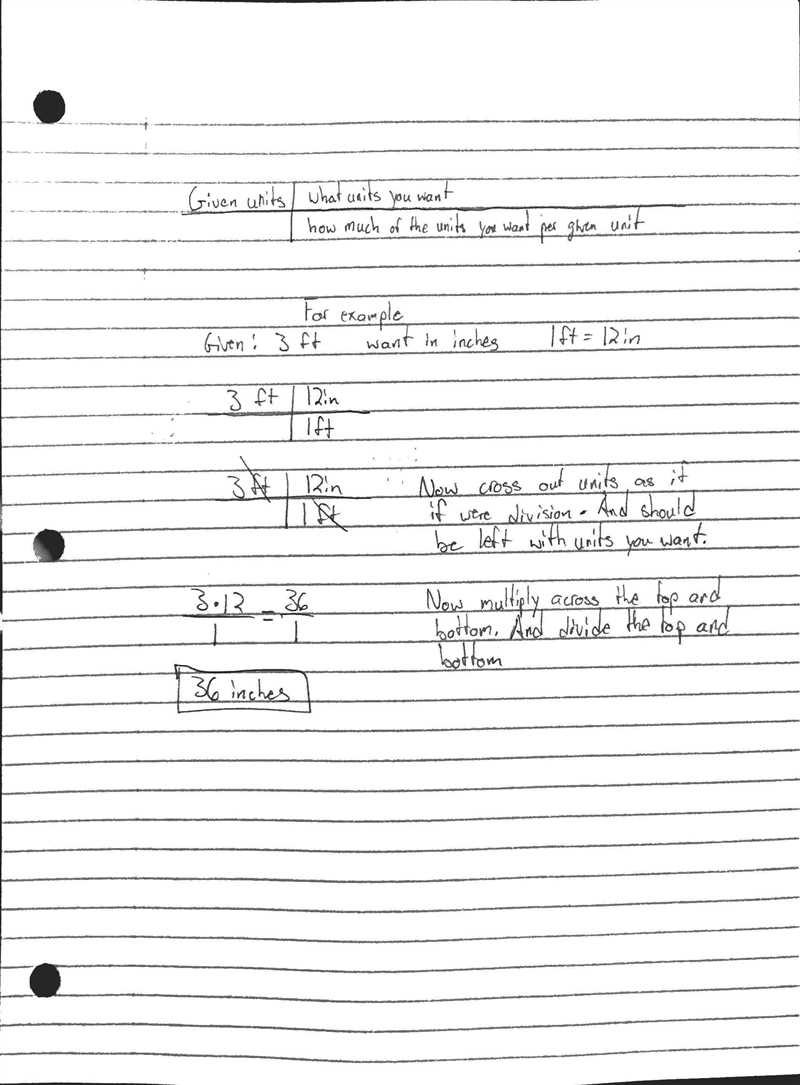 Given units | what units you want
how much of the units you want per given unit
For example
Given: 3 ft want in inches 1ft = 12in
3 ft | 12in
1ft
3 ft | 12in Now cross out units as if
1 ft if were division. And should
be left with units you want.
3·12 = 36 Now multiply across the top and
1 1 bottom. And divide the top and
bottom
36 inches